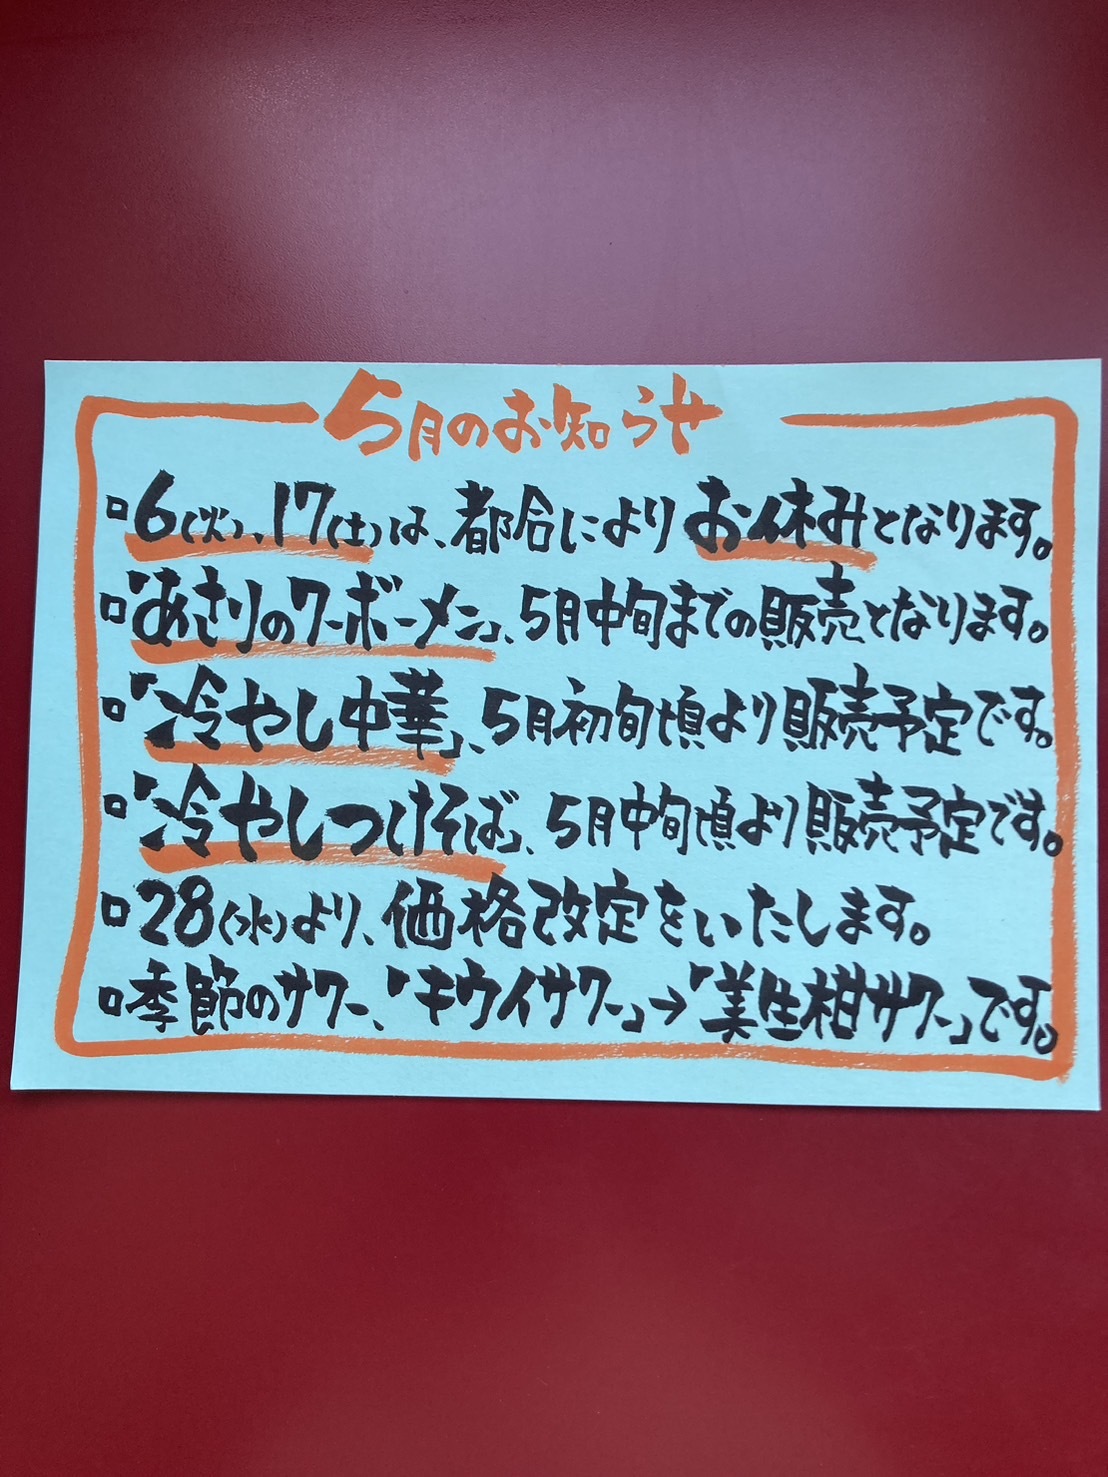 5月のお知らせ
□6(火)、17(土)は、都合によりお休みとなります。
□「あさりのワーボーメン」、5月中旬までの販売となります。
□「冷やし中華」、5月初旬頃より販売予定です。
□「冷やしつけそば」、5月中旬頃より販売予定です。
□28(水)より、価格改定をいたします。
□季節のサワー、「キウイサワー」→「美生柑サワー」です。